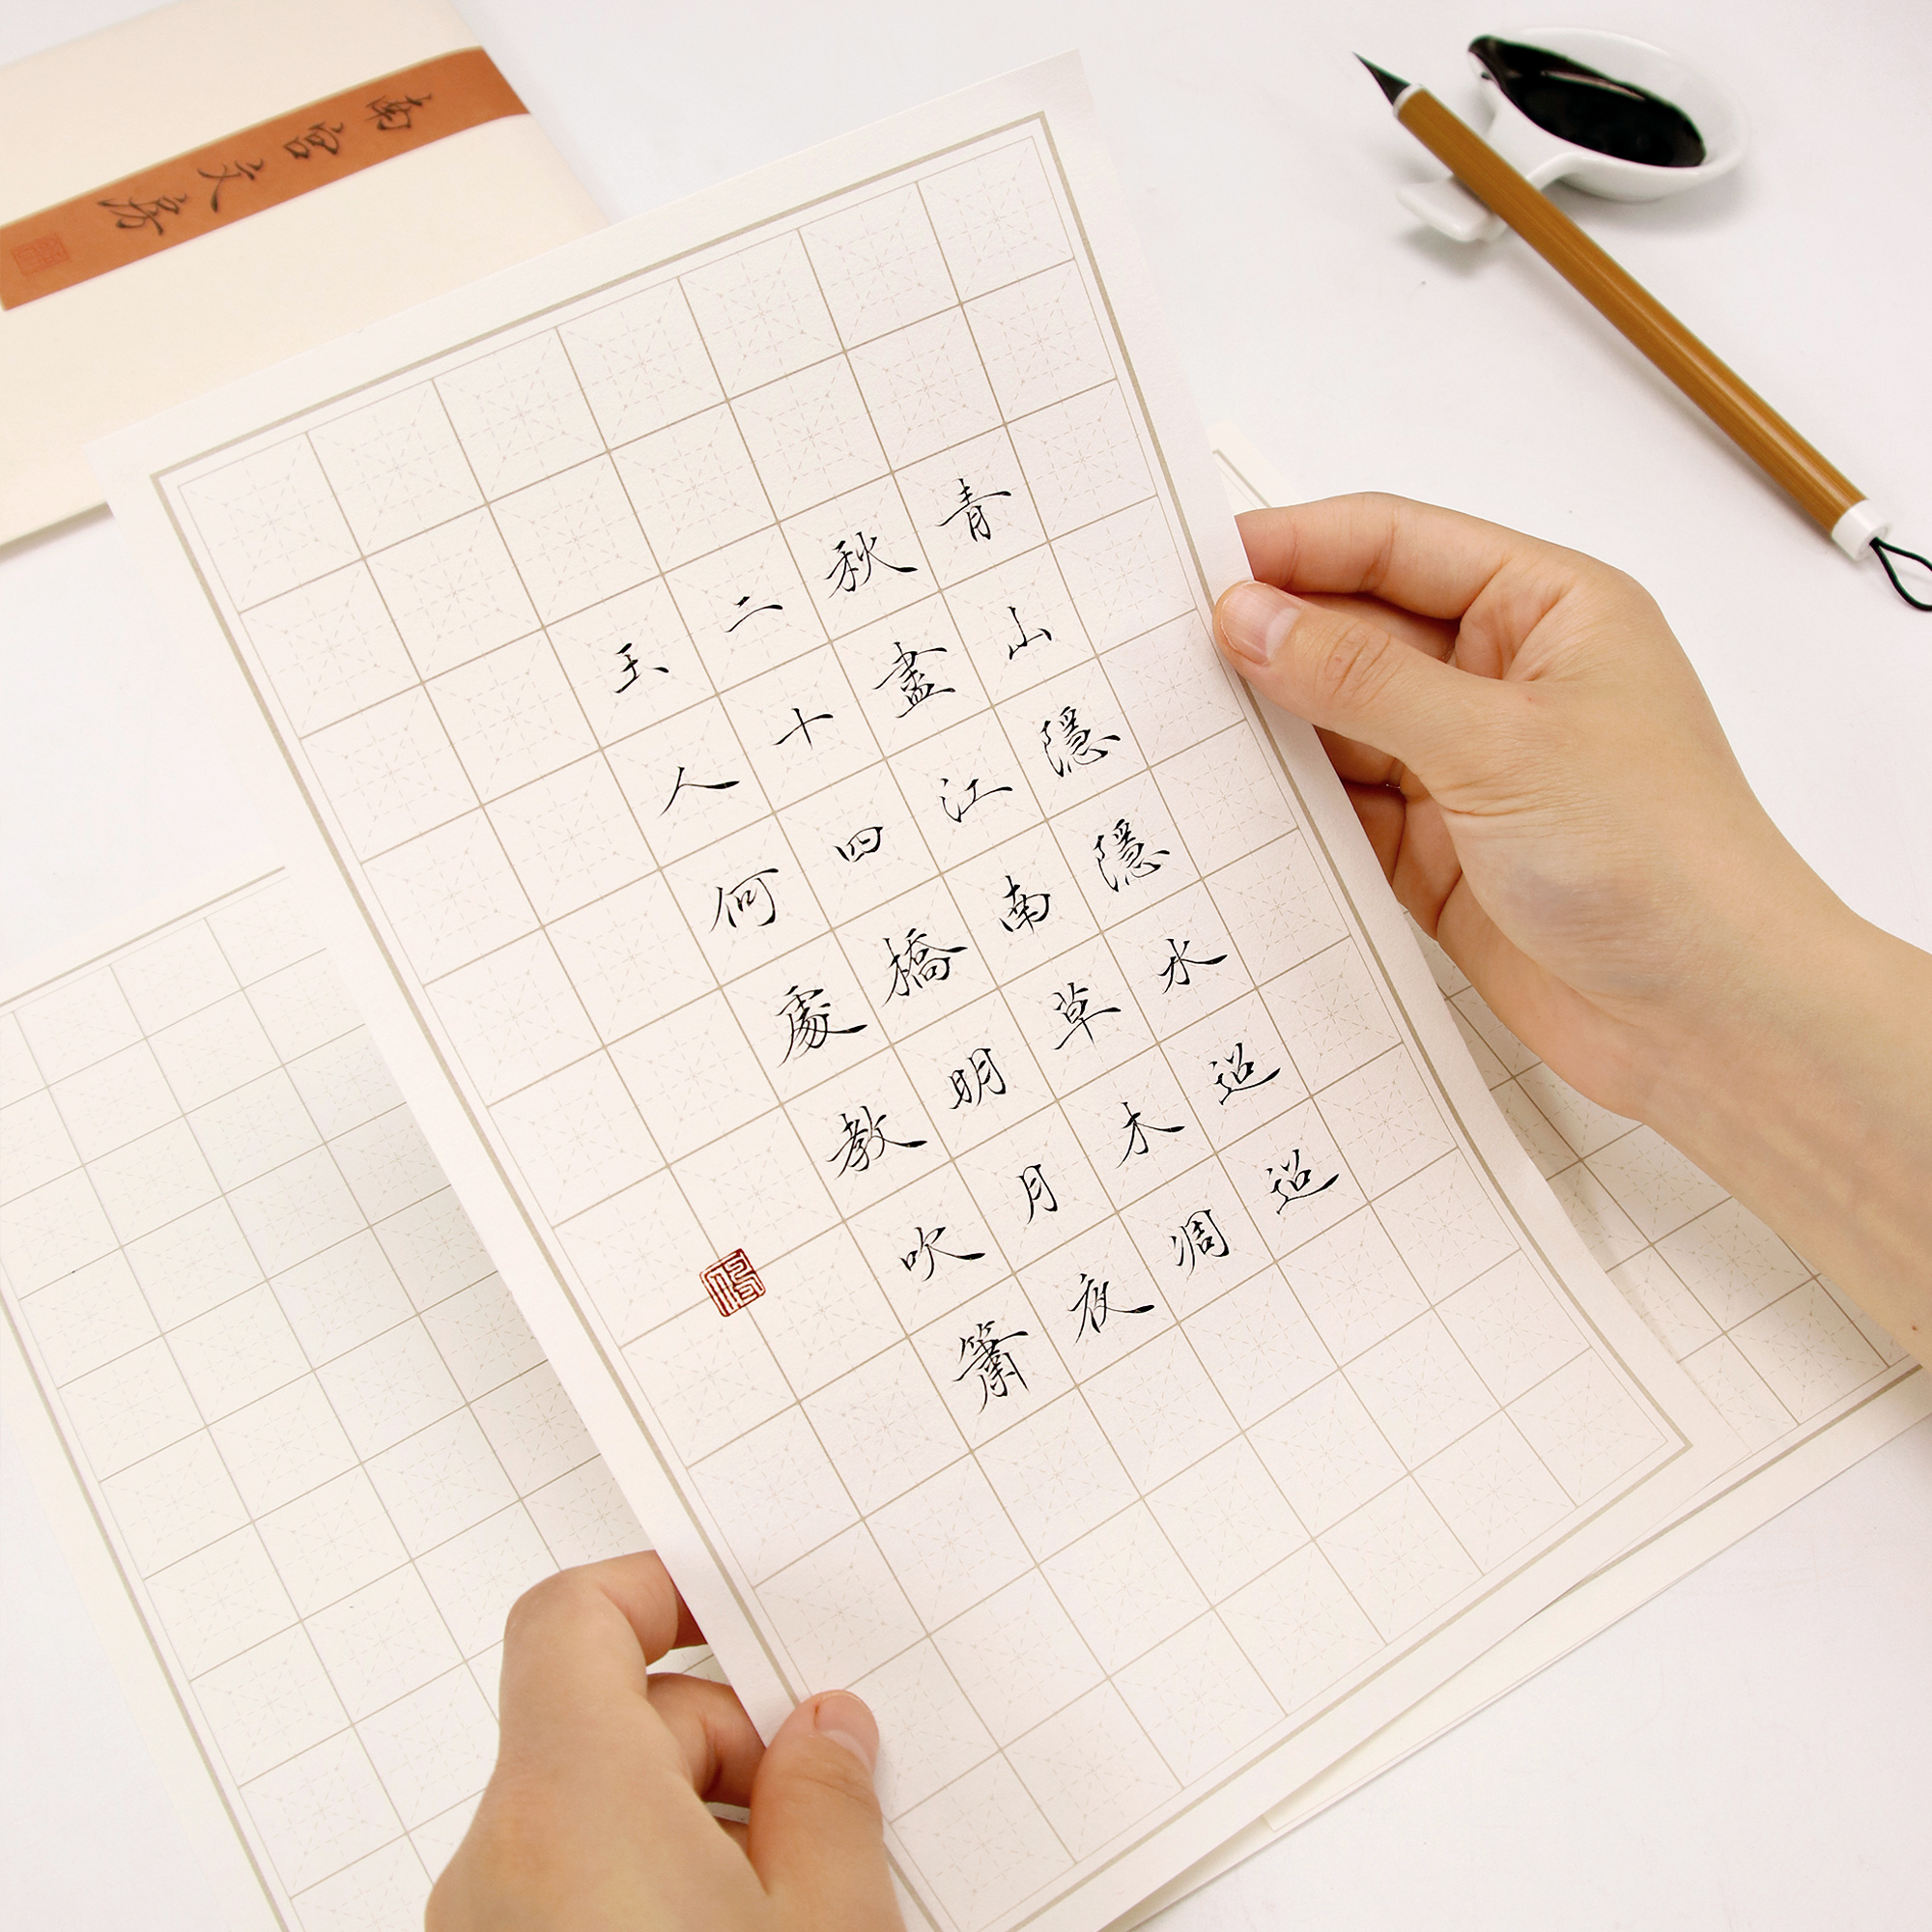 青山隱隱水迢迢
秋盡江南草木凋
二十四橋明月夜
玉人何處教吹簫
南宫文房